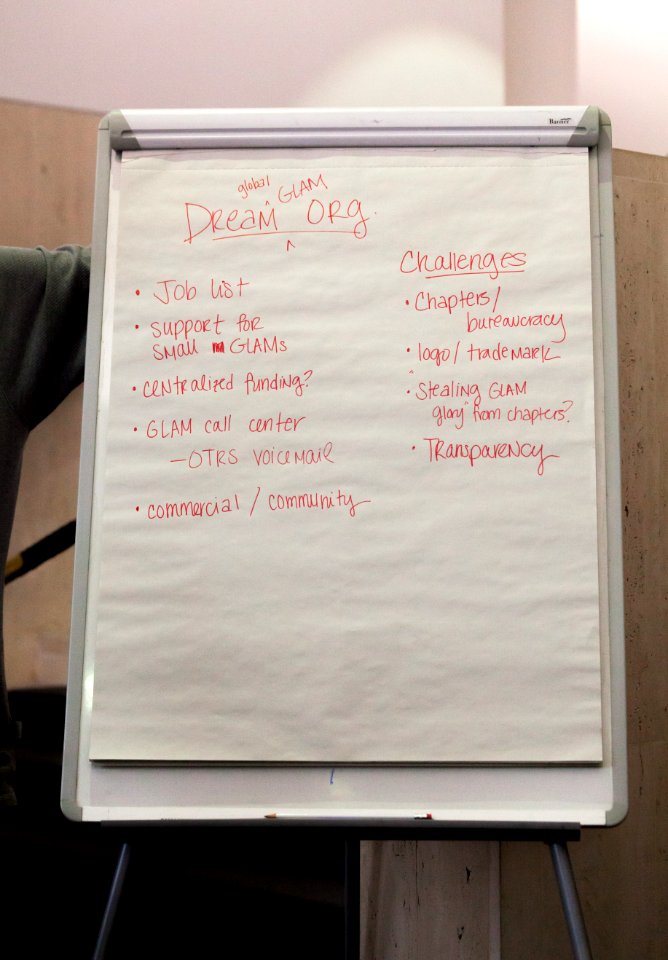 Banner
global GLAM
Dream Org.
• Job list
• Support for
small GLAMs
• Centralized funding?
• GLAM call center
– OTRS voicemail
• commercial / community
Challenges
• Chapters/
bureaucracy
• logo/trademark
• Stealing GLAM
glory from chapters?
• Transparency